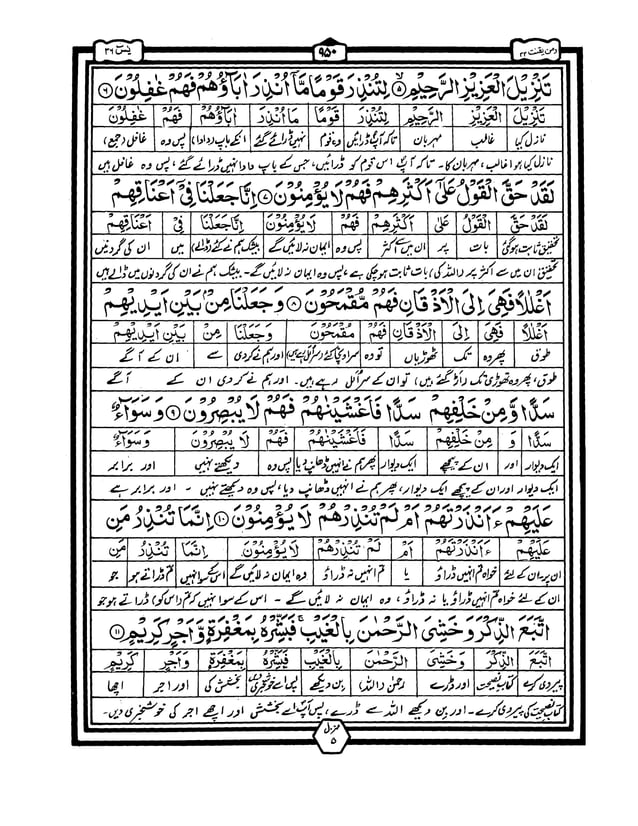 یٰسٓ ۳۶
۹۵۰
ومن یقنت ۲۲
تَنْزِيْلَ الْعَزِيْزِ الرَّحِيْمِ ۝۵ لِتُنْذِرَ قَوْمًا مَّآ اُنْذِرَ اٰبَآؤُهُمْ فَهُمْ غٰفِلُوْنَ ۝۶
تَنْزِيْلَ الْعَزِيْزِ الرَّحِيْمِ لِتُنْذِرَ قَوْمًا مَآ اُنْذِرَ اٰبَآؤُهُمْ فَهُمْ غٰفِلُوْنَ
نازل کیا غالب مہربان تاکہ آپ ڈرائیں وہ قوم نہیں ڈرائے گئے انکے باپ (دادا) پس وہ غافل (جمع)
نازل کیا ہوا غالب، مہربان کا۔ تاکہ آپ اس قوم کو ڈرائیں، جس کے باپ دادا نہیں ڈرائے گئے، پس وہ غافل ہیں
لَقَدْ حَقَّ الْقَوْلُ عَلٰٓى اَكْثَرِهِمْ فَهُمْ لَا يُؤْمِنُوْنَ ۝۷ اِنَّا جَعَلْنَا فِيْٓ اَعْنَاقِهِمْ
لَقَدْ حَقَّ الْقَوْلُ عَلٰٓى اَكْثَرِهِمْ فَهُمْ لَا يُؤْمِنُوْنَ اِنَّا جَعَلْنَا فِيْٓ اَعْنَاقِهِمْ
تحقیق ثابت ہوگئی بات پر ان میں سے اکثر پس وہ ایمان نہ لائیں گے بیشک ہم نے کئے (ڈالے) میں ان کی گردنیں
تحقیق ان میں سے اکثر پر (اللہ کی) بات ثابت ہوچکی ہے، پس وہ ایمان نہ لائیں گے۔ بیشک ہم نے ان کی گردنوں میں ڈالے ہیں
اَغْلٰلًا فَهِيَ اِلَى الْاَذْقَانِ فَهُمْ مُّقْمَحُوْنَ ۝۸ وَجَعَلْنَا مِنْۢ بَيْنِ اَيْدِيْهِمْ
اَغْلٰلًا فَهِيَ اِلَى الْاَذْقَانِ فَهُمْ مُقْمَحُوْنَ وَجَعَلْنَا مِنْ بَيْنِ اَيْدِيْهِمْ
طوق پھر وہ تک ٹھوڑیاں تو وہ سر اونچا کئے (سر اُلل رہے ہیں) اور ہم نے کردی سے ان کے آگے
طوق، پھر وہ ٹھوڑی تک (اڑ گئے ہیں) تو ان کے سر اُلل رہے ہیں۔ اور ہم نے کردی ان کے آگے
سَدًّا وَّمِنْ خَلْفِهِمْ سَدًّا فَاَغْشَيْنٰهُمْ فَهُمْ لَا يُبْصِرُوْنَ ۝۹ وَسَوَآءٌ
سَدًّا وَ مِنْ خَلْفِهِمْ سَدًّا فَاَغْشَيْنٰهُمْ فَهُمْ لَا يُبْصِرُوْنَ وَسَوَآءٌ
ایک دیوار اور ان کے پیچھے ایک دیوار پھر ہم نے انہیں ڈھانپ دیا پس وہ دیکھتے نہیں اور برابر
ایک دیوار اور ان کے پیچھے ایک دیوار، پھر ہم نے انہیں ڈھانپ دیا، پس وہ دیکھتے نہیں۔ اور برابر ہے
عَلَيْهِمْ ءَاَنْذَرْتَهُمْ اَمْ لَمْ تُنْذِرْهُمْ لَا يُؤْمِنُوْنَ ۝۱۰ اِنَّمَا تُنْذِرُ مَنِ
عَلَيْهِمْ ءَاَنْذَرْتَهُمْ اَمْ لَمْ تُنْذِرْهُمْ لَا يُؤْمِنُوْنَ اِنَّمَا تُنْذِرُ مَنِ
ان پر۔ان کے لئے خواہ تم انہیں ڈراؤ یا تم انہیں نہ ڈراؤ وہ ایمان نہ لائیں گے اسکے سوا نہیں تم ڈراتے ہو جو
ان کے لئے خواہ تم انہیں ڈراؤ یا نہ ڈراؤ، وہ ایمان نہ لائیں گے۔ اس کے سوا نہیں کہ تم (اس کو) ڈراتے ہو جو
اتَّبَعَ الذِّكْرَ وَخَشِيَ الرَّحْمٰنَ بِالْغَيْبِ فَبَشِّرْهُ بِمَغْفِرَةٍ وَّاَجْرٍ كَرِيْمٍ ۝۱۱
اتَّبَعَ الذِّكْرَ وَخَشِيَ الرَّحْمٰنَ بِالْغَيْبِ فَبَشِّرْهُ بِمَغْفِرَةٍ وَّاَجْرٍ كَرِيْمٍ
پیروی کرے کتابِ نصیحت اور ڈرے رحمٰن (اللہ) بن دیکھے پس اسے خوشخبری دیں بخشش کی اور اجر اچھا
کتابِ نصیحت کی پیروی کرے۔ اور بن دیکھے اللہ سے ڈرے، پس آپ اسے بخشش اور اچھے اجر کی خوشخبری دیں۔
منزل ۵